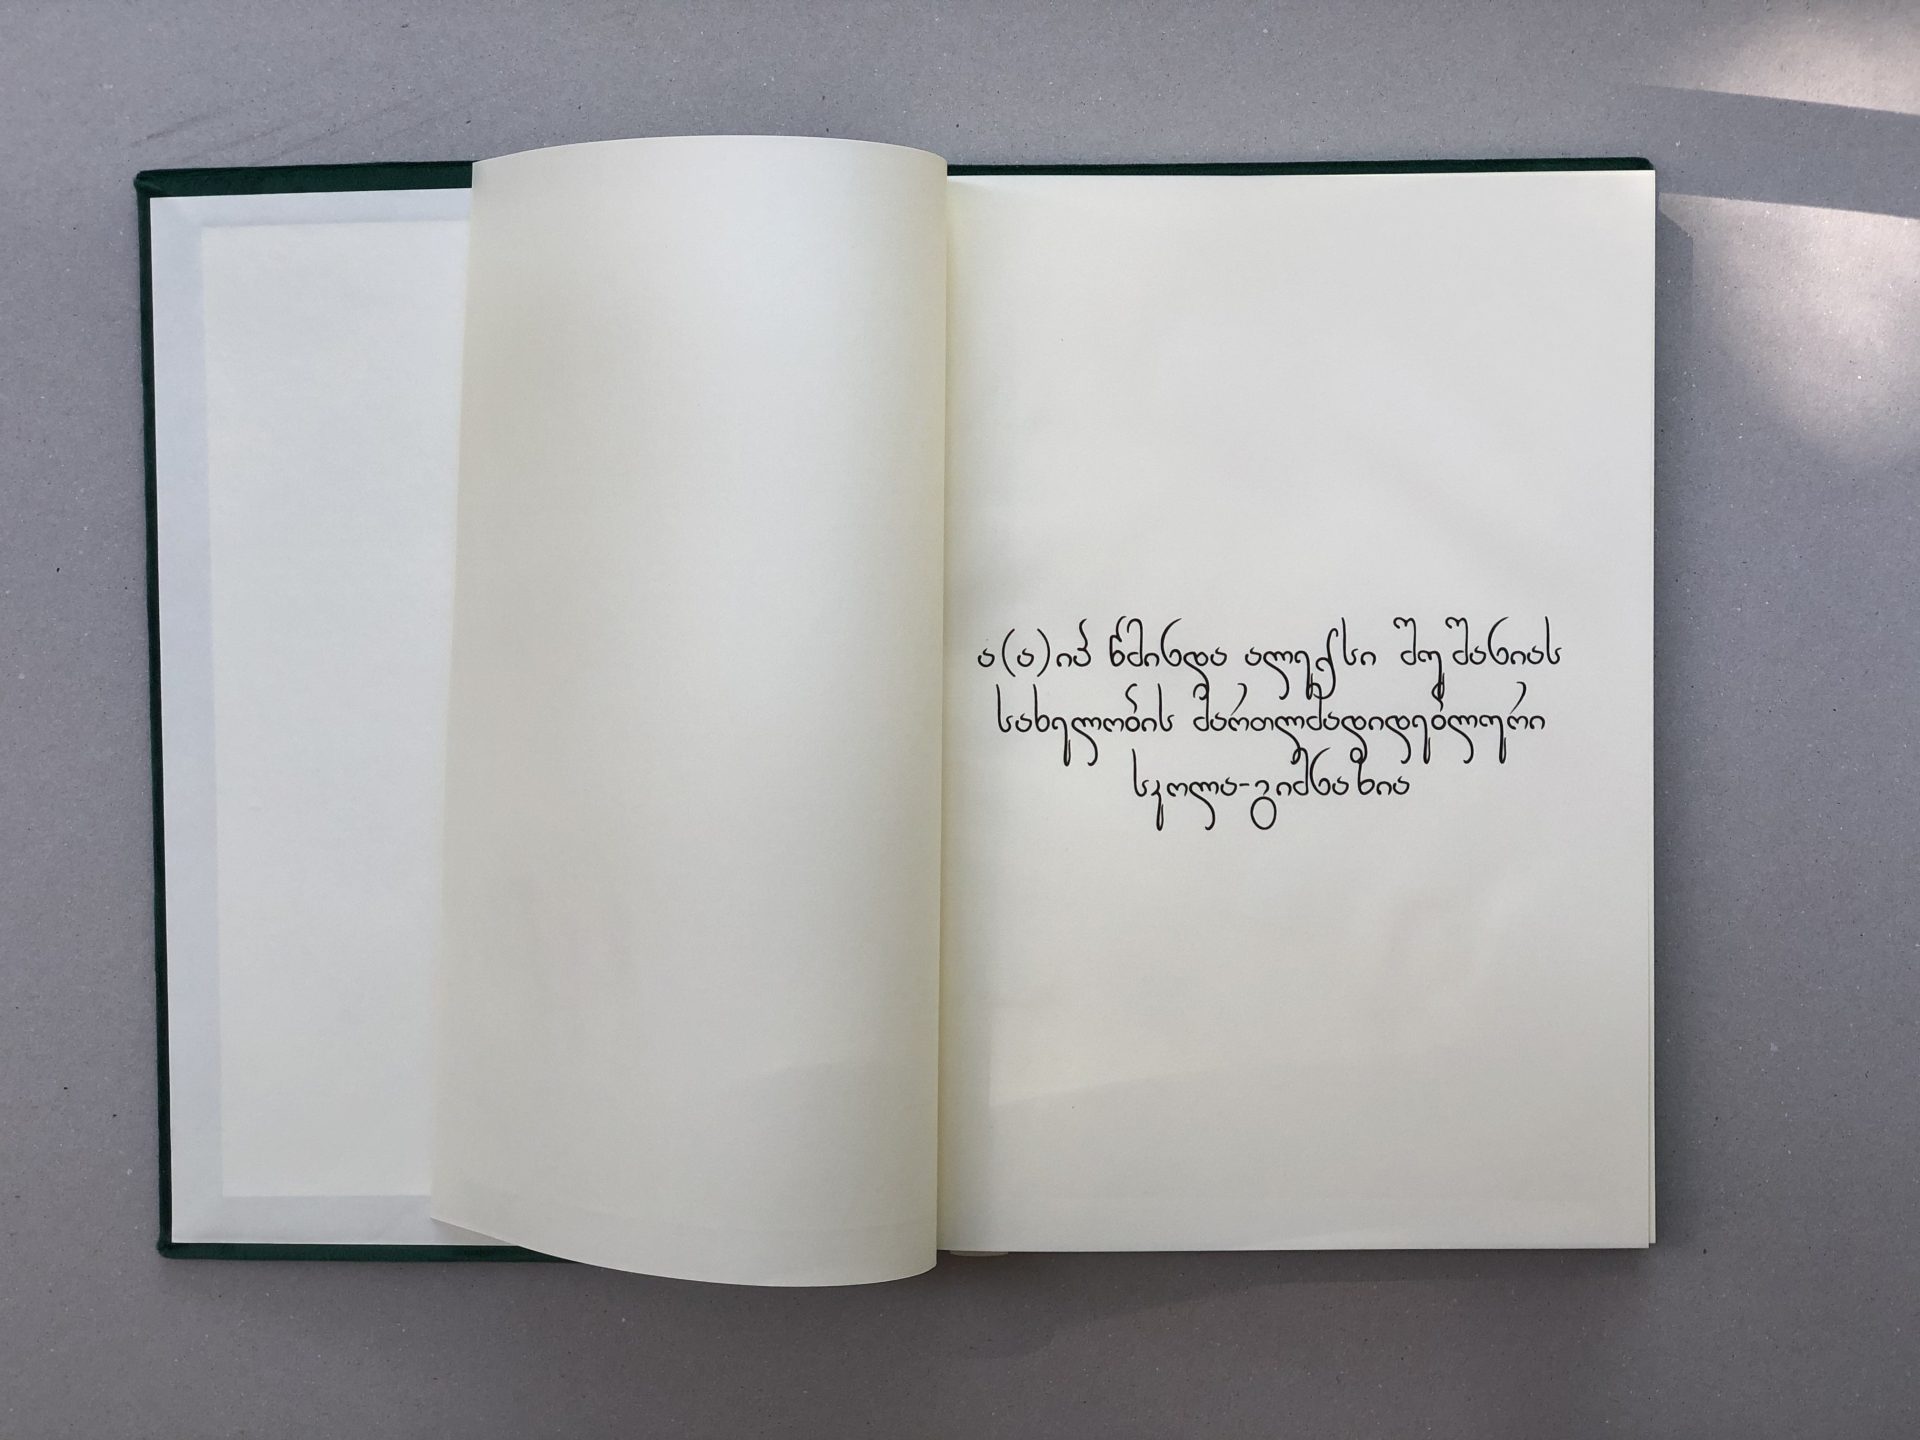 ა(ა)იპ წმინდა ალექსი შუშანიას
სახელობის მართლმადიდებლური
სკოლა-გიმნაზია